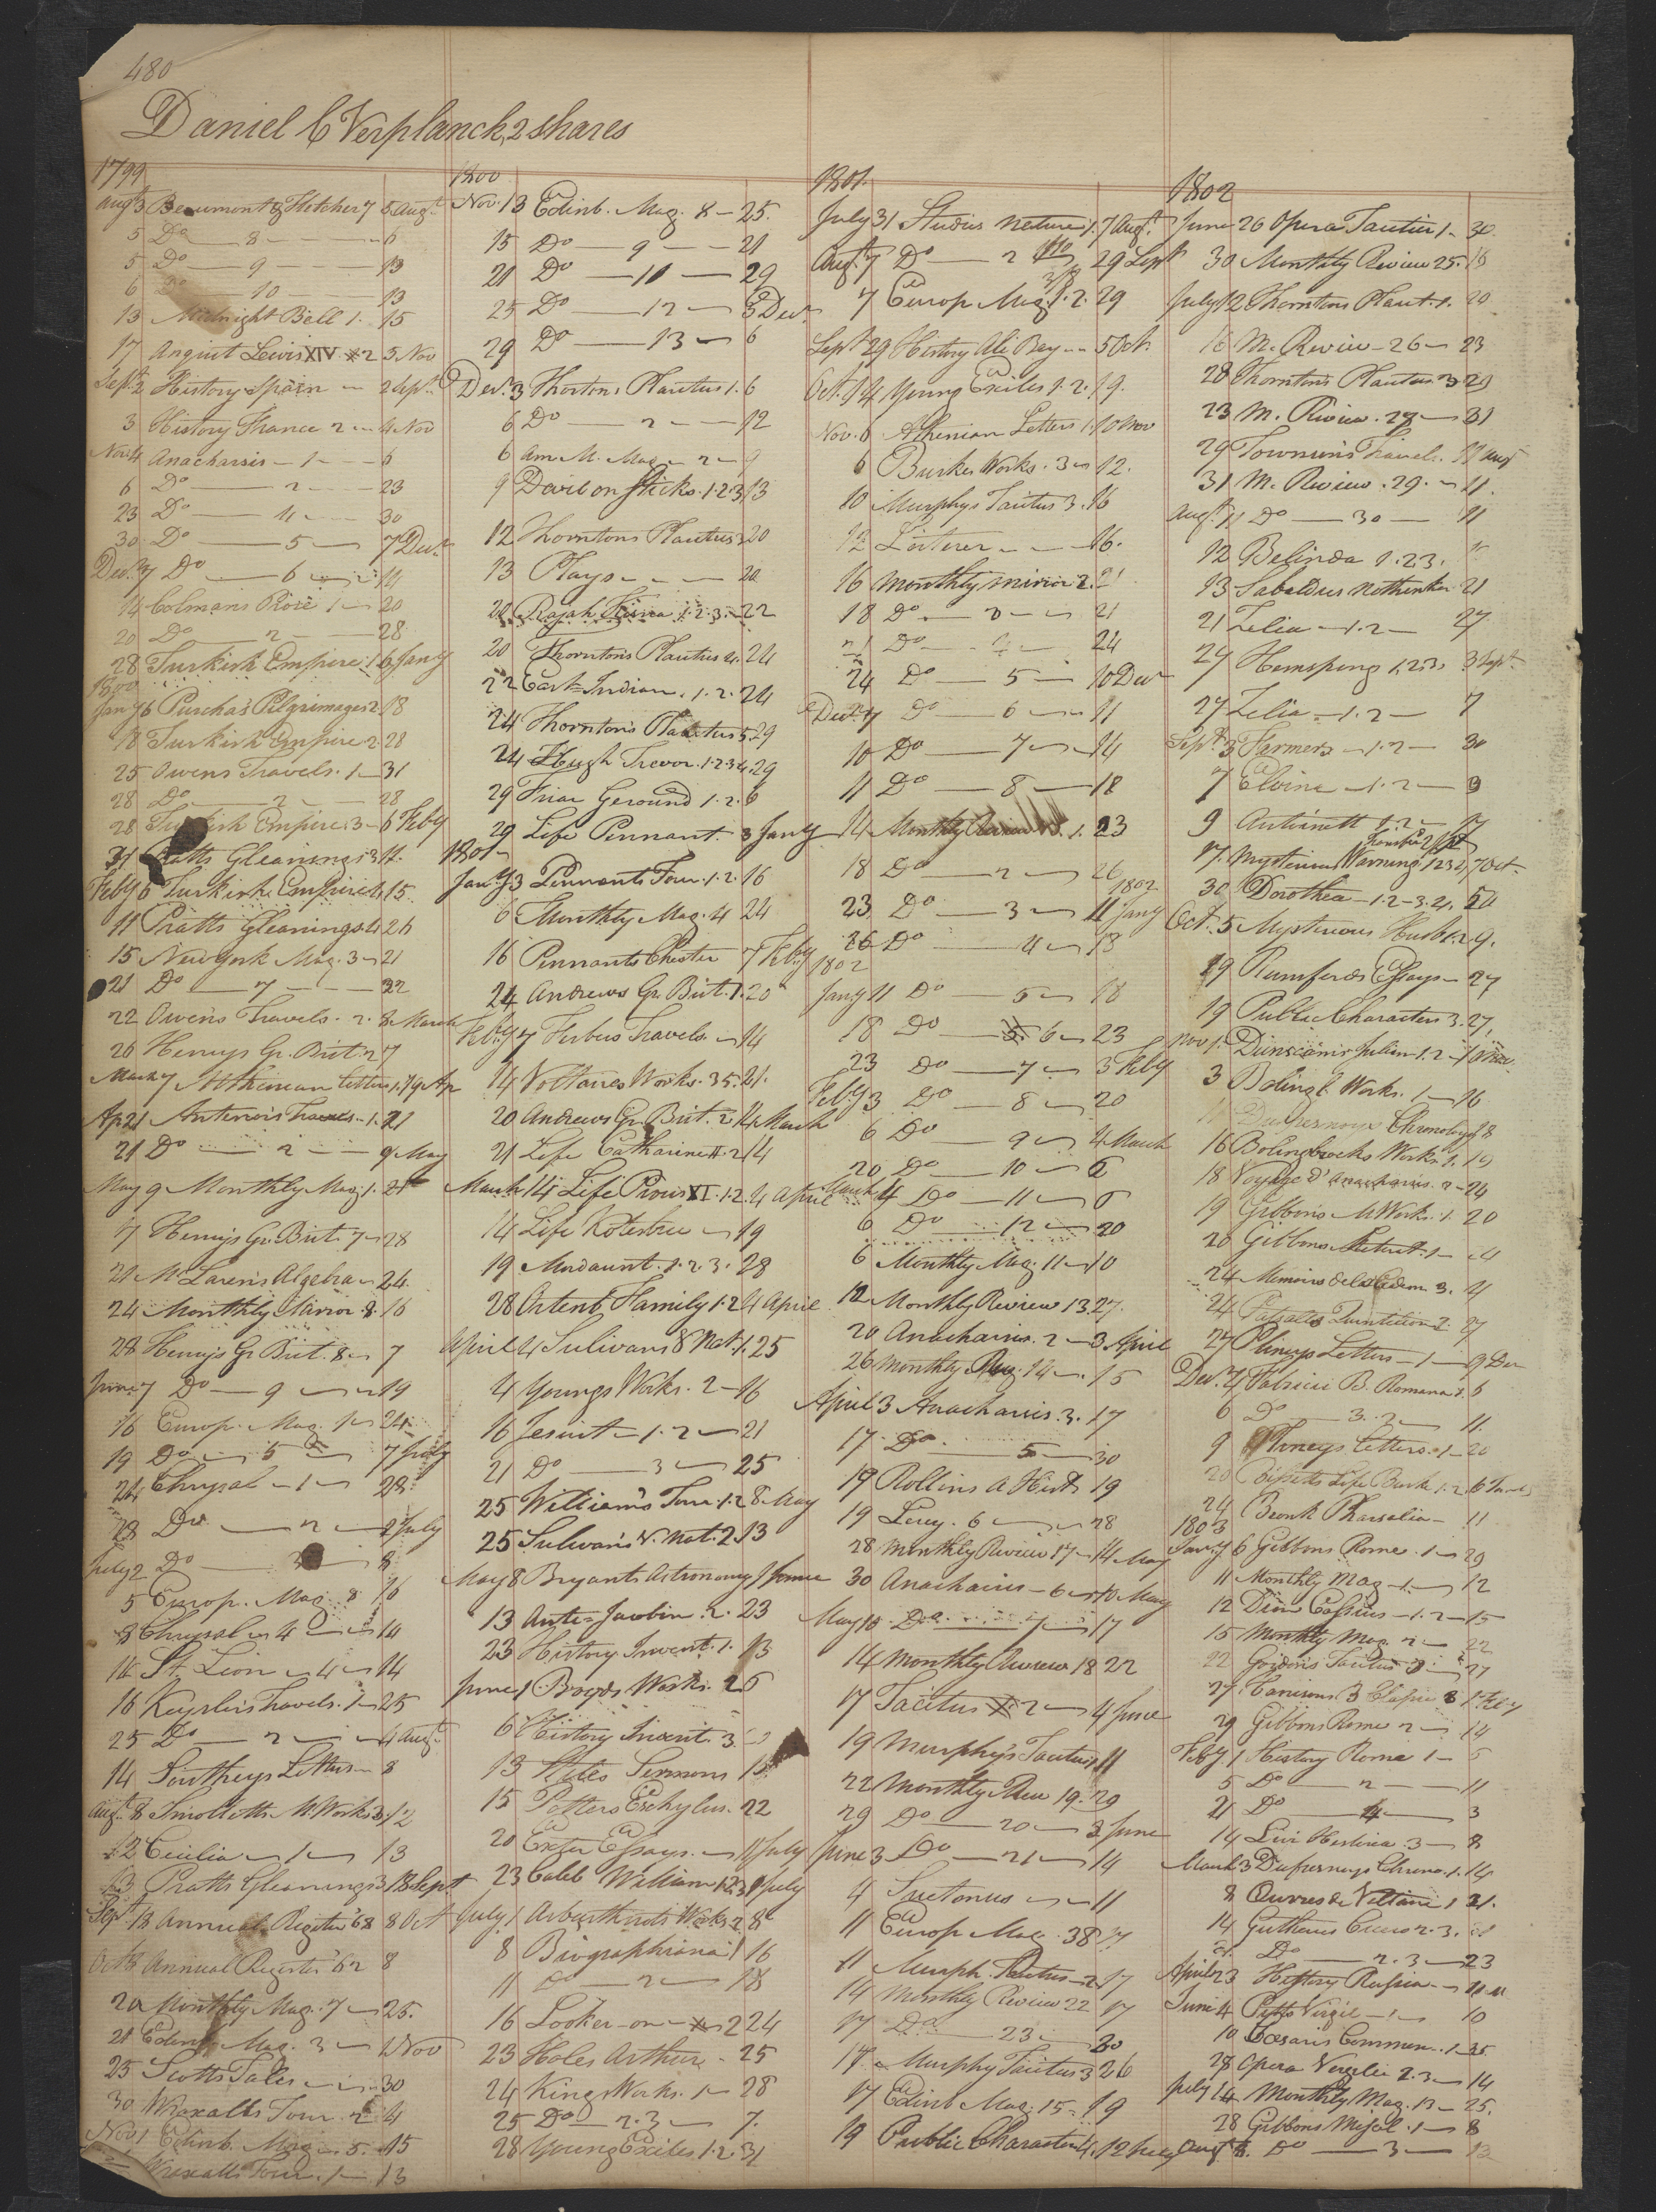 480
Daniel C Verplanck, 2 shares
1799
Augt 3 Beaumont & Fletcher 7 5 Augt
5 Do 8 6
5 Do 9 13
6 Do 10 13
13 Midnight Bell 1. 15
17 Lewis XIV 2 5 Nov
Sept 2 History Spain 2 Sept
3 History France 2 4 Nov
Nov. 4 Anacharsis 1 6
6 Do 2 23
23 Do 4 30
30 Do 5 7 Decr
Decr 7 Do 6 14
14 Colmans Prose 1 20
20 Do 2 28
28 Turkish Empire 1 6 Jany
1800
Jany 6 Purcha's Pilgrimages 2. 18
18 Turkish Empire 2. 28
25 Owens Travels. 1 31
28 Do 2 28
28 Turkish Empire 3 6 Feby
31 Pratts Gleanings 3 11.
Feby 6 Turkish Empire 4 15.
11 Pratts Gleanings 4 26
15 New York Mag. 3 21
21 Do 7 22
22 Owens Travels. 2. 8 March
26 Henrys Gr. Brit. 2 7
March 7 Athenian Letters 1. 19 Ap
Ap 21 Antenors Travels 1. 21
21 Do 2 9 May
May 9 Monthly Mag. 1. 21
7 Henrys Gr. Brit. 7 28
21 McLaren's Algebra 24.
24 Monthly Mirror 8 16
28 Henrys Gr Brit. 8 7
June 7 Do 9 19
16 Europ. Mag. 1 24
19 Do 5 7 July
24 Chrysal 1 28
28 Do 2 2 July
July 2 Do 3 8
5 Europ. Mag 8 16
8 Chrysal 4 14
14 St. Leon 4 14
16 Keyslers Travels. 1 25
25 Do 2 4 Augt
14 Southeys Letters 8
Augt 8 Smolletts M. Works 3. 12
12 Cecilia 1 13
13 Pratts Gleanings 3 18 Sept
Sept 18 Annual Register '68 8 Oct
Oct 8 Annual Register '62 8
20 Monthly Mag. 7 25.
21 Edinb. Mag. 3 1 Nov
25 Scotts Tales 30
30 Wraxalls Tour. 2 4
Nov 1 Edinb. Mag. 5. 15
Wraxalls Tour. 1 13
1800
Nov. 13 Edinb. Mag. 8 25.
15 Do 9 21
21 Do 11 29
25 Do 12 3 Decr
29 Do 13 6
Decr. 3 Thortons Plautus 1. 6
6 Do 2 12
6 Am. M. Mag. 2 9
9 Devil on Sticks. 1.2.3 13
12 Thorntons Plautus 3 20
13 Plays 20
20 Rajah 1.2.3. 22
20 Thorntons Plautus 4. 24
22 East Indian. 1.2. 24
24 Thorntons Plautus 5 29
24 Hugh Trevor. 1.2.3.4. 29
29 Friar Geround 1.2. 6
29 Life Pennant. 3 Jany
1801
Jany 3 Pennants Tour. 1.2. 16
6 Monthly Mag. 4 24
16 Pennants Chester 7 Feby
24 Andrews Gr. Brit. 1. 20
Feby 7 Travels. 14
14 Voltaires Works. 35. 21.
20 Andrews Gr. Brit. 2 14 March
21 Life Catharine II. 2 14
March 14 Life Pious XI. 1.2. 4 April
14 Life Kotzebue 19
19 Mordaunt. 1.2.3. 28
28 Ortenb. Family 1.2 4 April
April 4 Sulivans 8 Nat. 1. 25
4 Youngs Works. 2 16
16 Jesuit 1.2 21
21 Do 3 25
25 Williams Tour. 1.2 8 May
25 Sulivan's V. Nat. 2 13
May 8 Bryants Astronomy 1 June
13 Anti-Jacobin. 2. 23
23 History Invent. 1. 13
June 1 Boyds Works. 2 6
6 History Invent. 3.
13 Sermons 15
15 Potters Eschylus. 22
20 Exeter Essays. 11 July
23 Caleb William 1.2.3 1 July
July 1 Arburthnots Works 2 8
8 Biographiana 1 16
11 Do 2 18
16 Looker-on 2 24
23 Holes Arthur 25
24 Kings Works. 1 28
25 Do 2.3 7.
28 Young Exiles 1.2 31
1801.
July 31 Studies Nature 1. 7 Augt.
Augt 7 Do 2 29 Sept
7 Europ Mag. 1.2. 29
Sept 29 History Ali Bey 5 Oct.
Oct. 14 Young Exiles 1.2. 19.
Nov. 6 Athenian Letters 1. 10 Nov
6 Burkes Works. 3 12.
10 Murphys Tacitus 3. 16
12 Loiterer 16.
16 Monthly Mirror 2. 21
18 Do 3 21
21 Do 4 24
24 Do 5 10 Decr
Decr 7 Do 6 11
10 Do 7 14
11 Do 8 18
14 Monthly Review 1. 23
18 Do 2 26
1802
23 Do 3 11 Jany
26 Do 4 13
1802
Jany 11 Do 5 18
18 Do 6 23
23 Do 7 3 Feby
Feby 3 Do 8 20
6 Do 9 4 March
20 Do 10 6
March 4 Do 11 6
6 Do 12 20
6 Monthly Mag. 11 10
12 Monthly Review 13. 27.
20 Anacharsis. 2 3 April
26 Monthly Mag. 14 15
April 3 Anacharsis. 3. 17
17. Do 5 30
19 Rollins A Hist. 19
19 Livy. 6 28
28 Monthly Review 17 14 May
30 Anacharsis 6 10 May
May 10 Do 7 17
14 Monthly Review 18 22
17 Tacitus 2 4 June
19 Murphy's Tacitus 11
22 Monthly Review 19. 29
29 Do 20 3 June
June 3 Do 21 14
4 Suetonius 11
11 Europ Mag. 38 17
11 Murph. Tacitus 2 17
14 Monthly Review 22 17
17 Do 23 30
17 Murphy Tacitus 3 26
17 Edinb Mag. 15 19
19 Public Characters 4. 12 July
1802
June 26 Opera Taciti 1. 30.
30 Monthly Review 25. 16
July 12 Thorntons Plaut. 1. 20
16 M. Review 26 23
28 Thorntons Plautus 3 29
23 M. Review. 27 31
29 Townsons Travels. 11 Augt
31 M. Review. 29. 11.
Augt. 11 Do 30 11
12 Belinda 1.2.3.
13 21
21 Zelia 1.2 27
27 Hermsprong 1.2.3. 3 Sept.
27 Zelia 1.2 7
Sept 3 Farmers 1.2 30
7 Elvina 1.2 9
9 Antoinett 1.2 17
17. Mysterious Warning 1 2 3 4 7 Oct.
30 Dorothea 1.2.3.4.
Oct. 5 Mysterious Husb. 1.2 9.
19 Rumfords Essays 27
19 Public Characters 3. 27.
Nov 1. Julian 1.2
3 Boling. Works. 1 16
Dufresnoys Chronology 18
16 Bolingbrocks Works 1. 19
18 Voyage d'Anacharsis. 2 24
19 Gibbons M Works. 1. 20
20 Gibbons 1 4
24 Memoirs 3. 4
24 Quintilian 2 27
27 Plineys Letters 1 9 Dec
Decr. 4 B. Romana 1. 6
6 Do 3.2 11.
9 Plineys Letters. 1 20
20 Bissets Life Burke 1.2. 6
24 Pharsalia 11
1803
Jany 6 Gibbons Rome. 1 29
11 Monthly Mag. 1. 12
12 Dion Cassius 1.2 15
15 Monthly Mag. 2 22
22 Gordons Tacitus 3 27
27. Feby
29 Gibbons Rome 2 14
Feby 1 History Rome 1 5
5 Do 2 11
21 Do 4 3
14 3 8
March 3 Dufresnoys Chrono. 1. 14
8 Œuvres de Voltaire 1 21.
14 Guthries Cicero 2.3.
Do 2.3 23
April 23 History Russia
June 4 Pitts Virgil 1 10
10 Cæsaris Commen. 1 25
28 Opera Virgilii 2.3 14
July 14 Monthly Mag. 13 25.
28 Gibbons Miscl. 1 8
Augt 8. Do 3 13